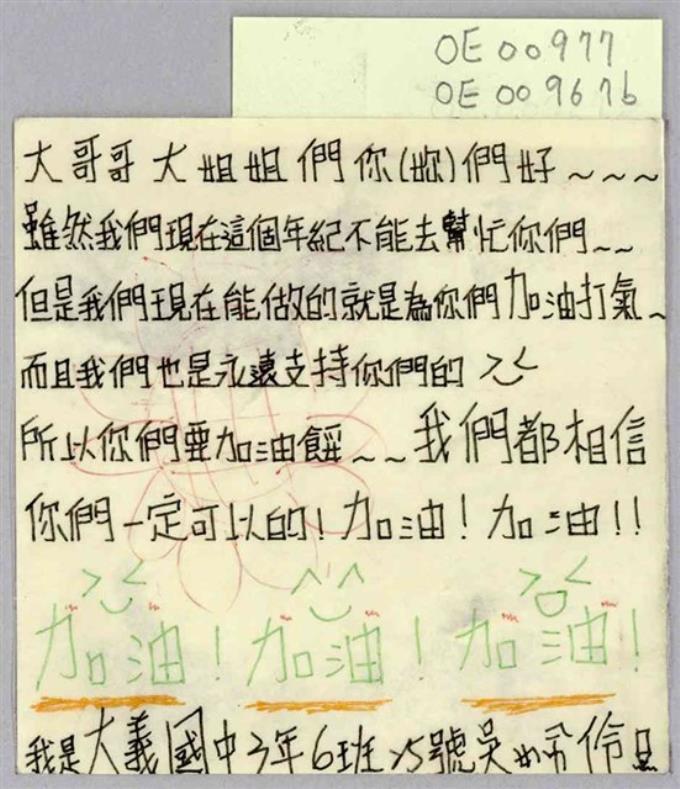 OE00977
OE009676
大哥哥大姐姐們你(妳)們好~~~
雖然我們現在這個年紀不能去幫忙你們~~
但是我們現在能做的就是為你們加油打氣~
而且我們也是永遠支持你們的
所以你們要加油餒~~我們都相信
你們一定可以的!加油!加油!!
加油!加油!加油!
我是大義國中3年6班25號吳